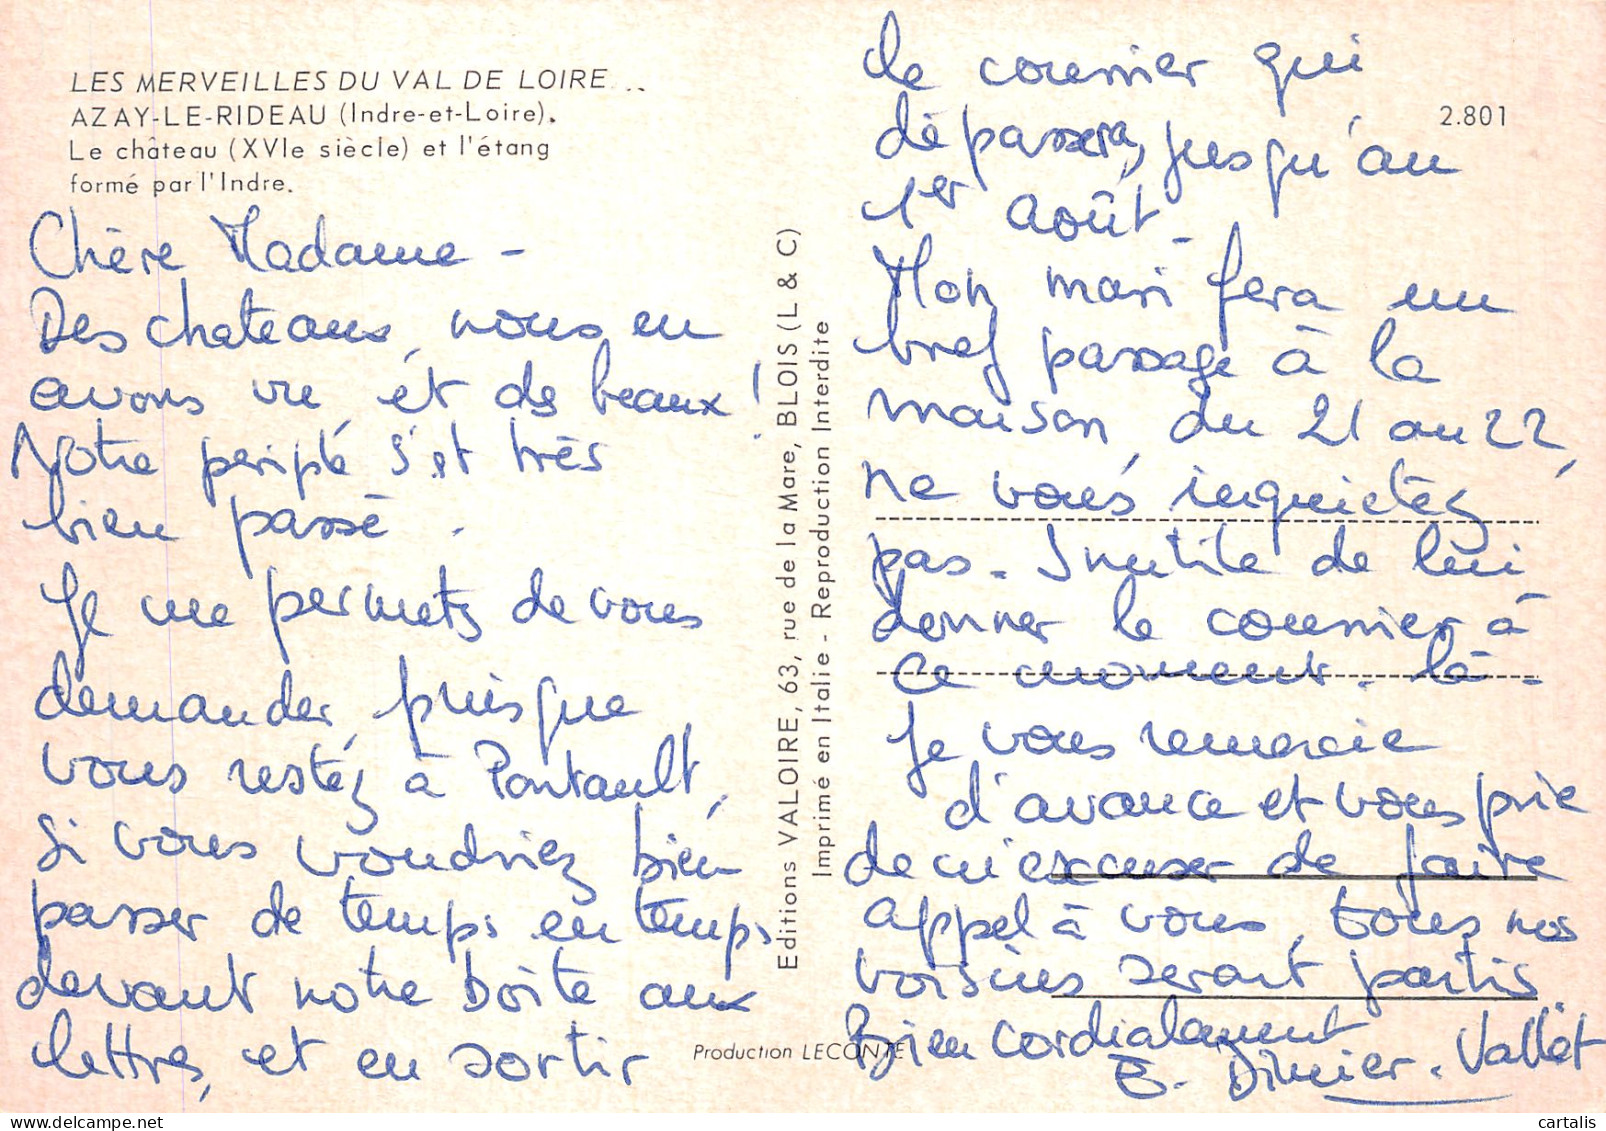 LES MERVEILLES DU VAL DE LOIRE...
AZAY-LE-RIDEAU (Indre-et-Loire).
Le château (XVIe siècle) et l'étang
formé par l'Indre.
2.801
Chère Madame -
Des chateaux, nous en
avons vu, et des beaux !
Notre periple s'est très
bien passé.
Je me permets de vous
demander, puisque
vous restez à Pontault,
si vous voudriez bien
passer de temps en temps
devant notre boite aux
lettres, et en sortir
le courrier qui
dépassera, jusqu'au
1er août.
Mon mari fera un
bref passage à la
maison, du 21 au 22,
ne vous inquietez
pas. Inutile de lui
donner le courrier à
ce moment-là.
Je vous remercie
d'avance et vous prie
de m'excuser de faire
appel à vous, tous nos
voisins seront partis.
Bien cordialement
Dimier-Vallet
Editions VALOIRE, 63, rue de la Mare, BLOIS (L & C)
Imprimé en Italie - Reproduction Interdite
Production LECONTE
cartalis